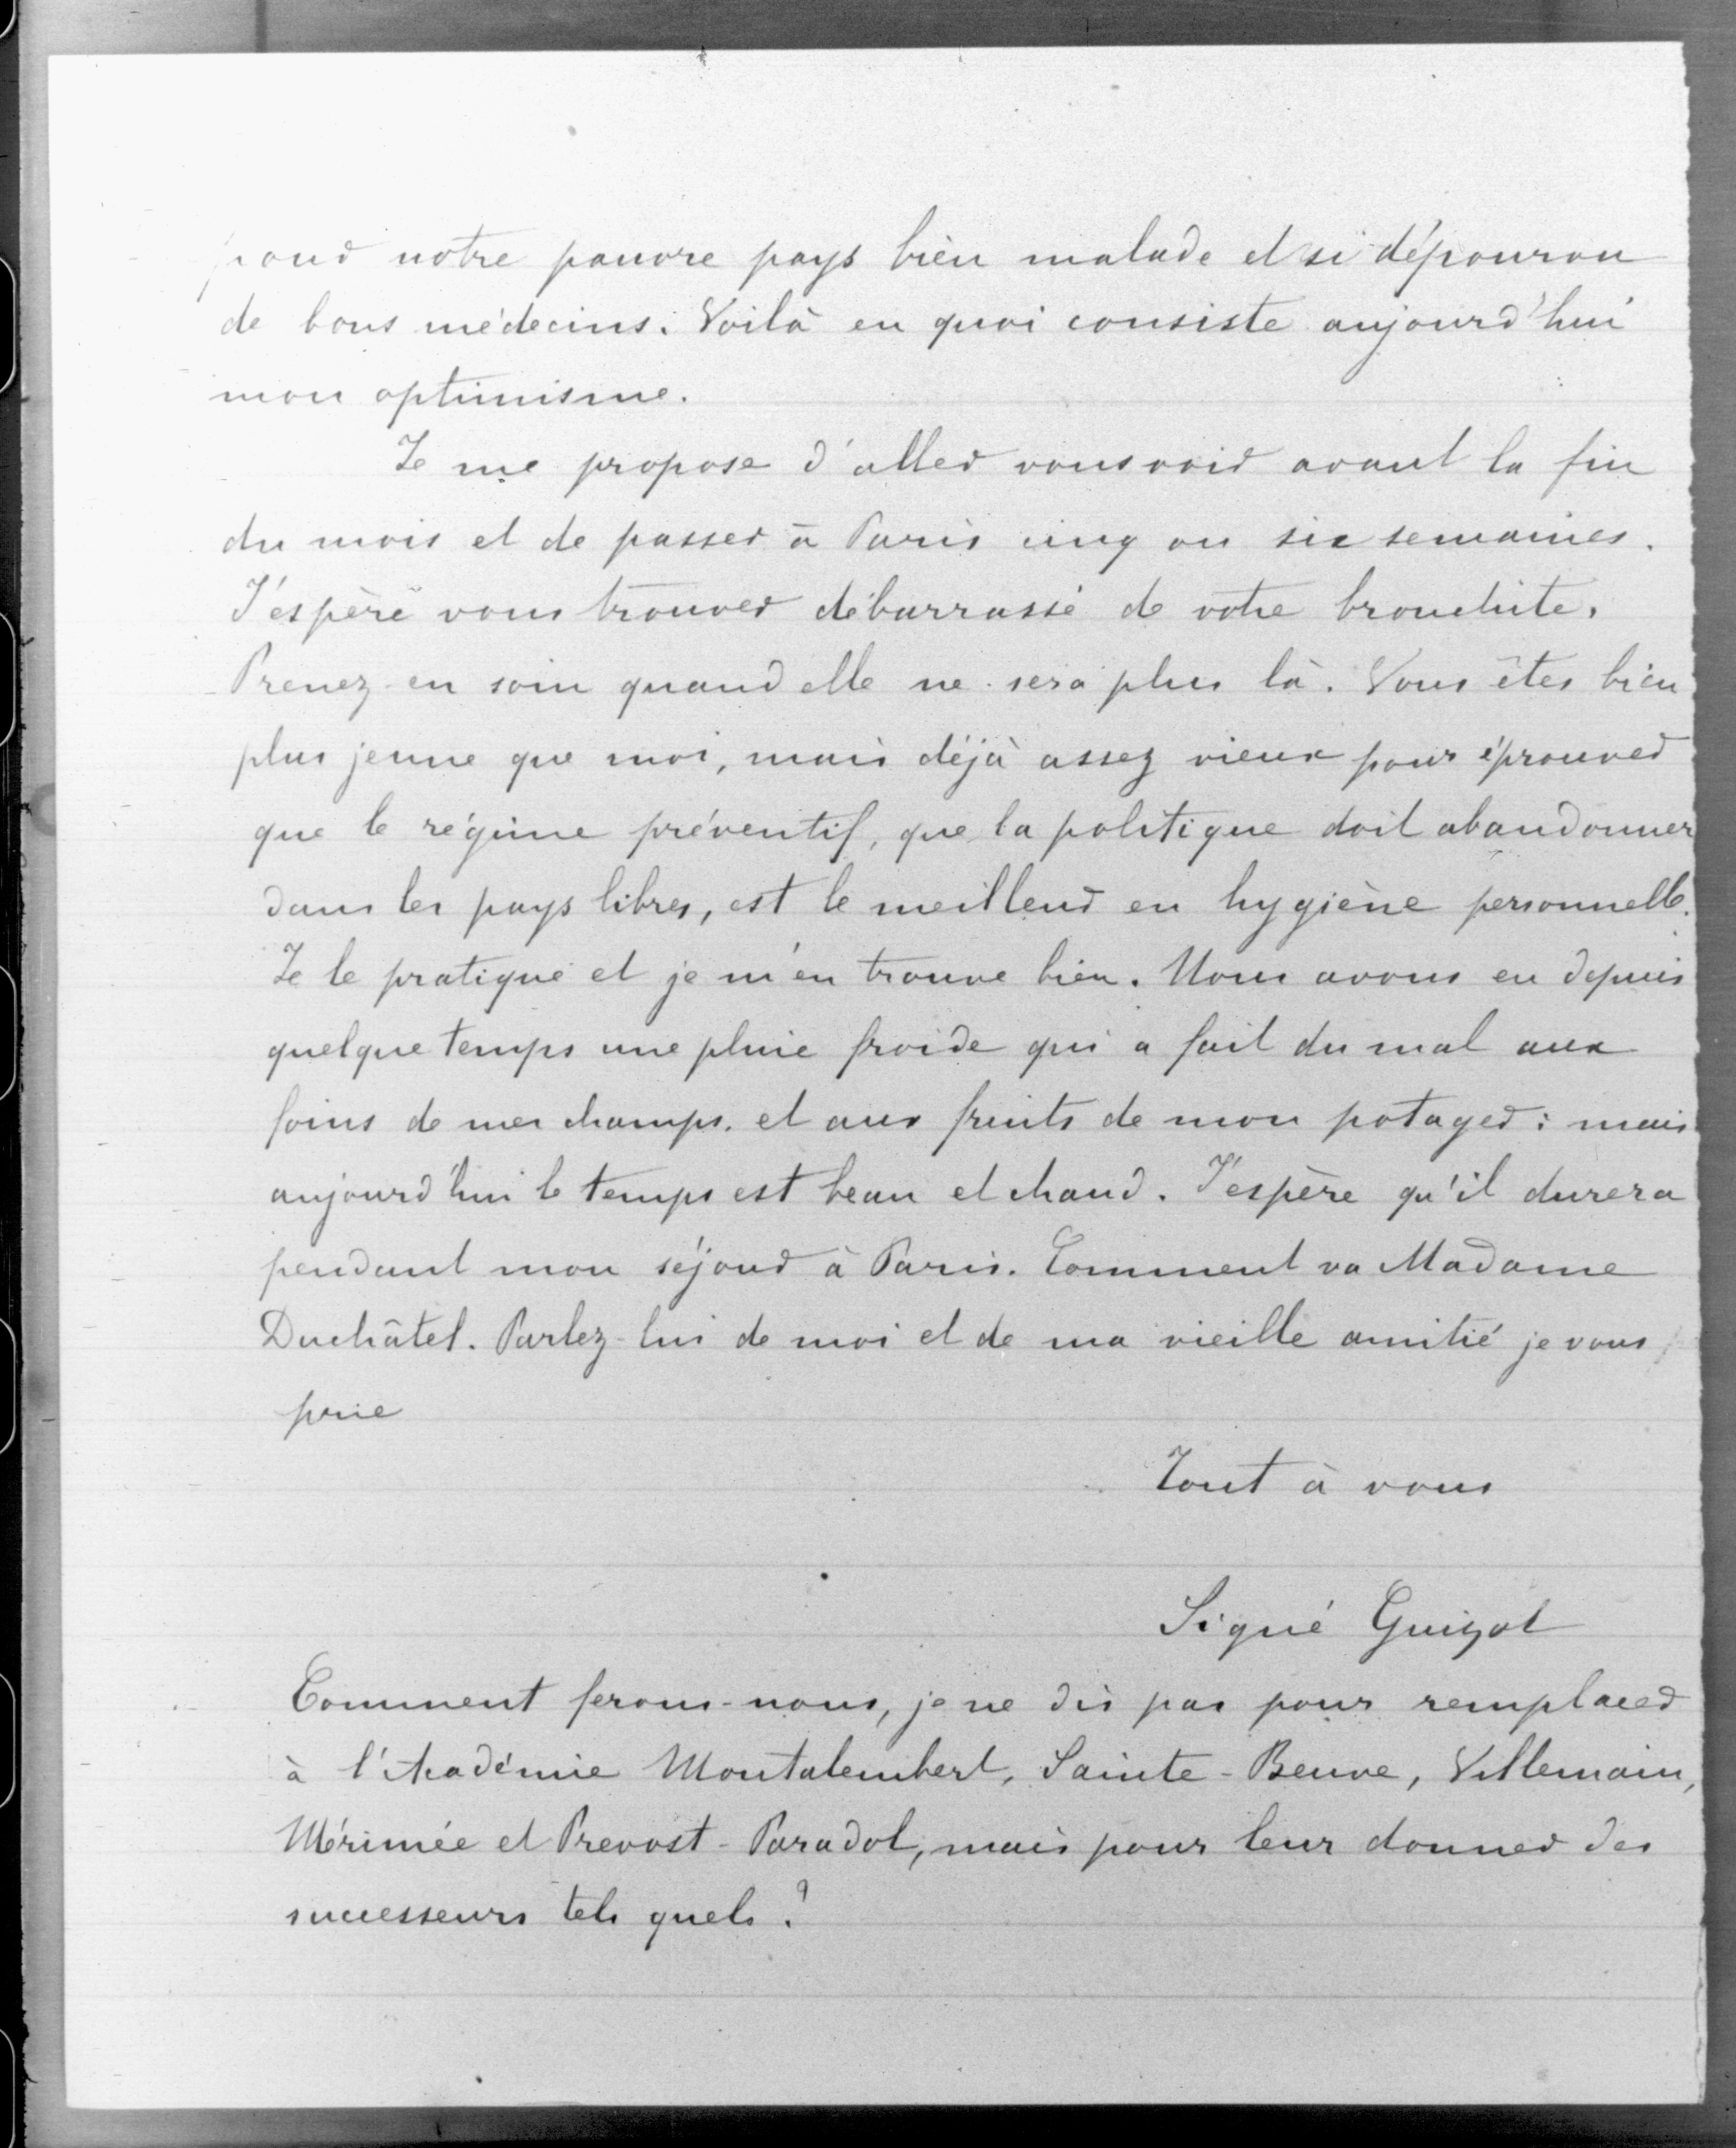 pour notre pauvre pays bien malade et si dépourvu
de bons médecins. Voilà en quoi consiste aujourd'hui
mon optimisme.
Je me propose d'aller vous voir avant la fin
du mois et de passer à Paris cinq ou six semaines.
J'espère vous trouver débarrassé de votre bronchite.
Prenez-en soin quand elle ne sera plus là. Vous êtes bien
plus jeune que moi, mais déjà assez vieux pour éprouver
que le régime préventif, que la politique doit abandonner
dans les pays libres, est le meilleur en hygiène personnelle.
Je le pratique et je m'en trouve bien. Nous avons eu depuis
quelque temps une pluie froide qui a fait du mal aux
foins de mes champs. et aux fruits de mon potager : mais
aujourd'hui le temps est beau et chaud. J'espère qu'il durera
pendant mon séjour à Paris. Comment va Madame
Duchâtel. Parlez-lui de moi et de ma vieille amitié je vous
prie
Tout à vous
Signé Guizot
Comment ferons-nous, je ne dis pas pour remplacer
à l'Académie Montalembert, Sainte-Beuve, Villemain,
Mérimée et Prevost-Paradol, mais pour leur donner des
successeurs tels quels ?